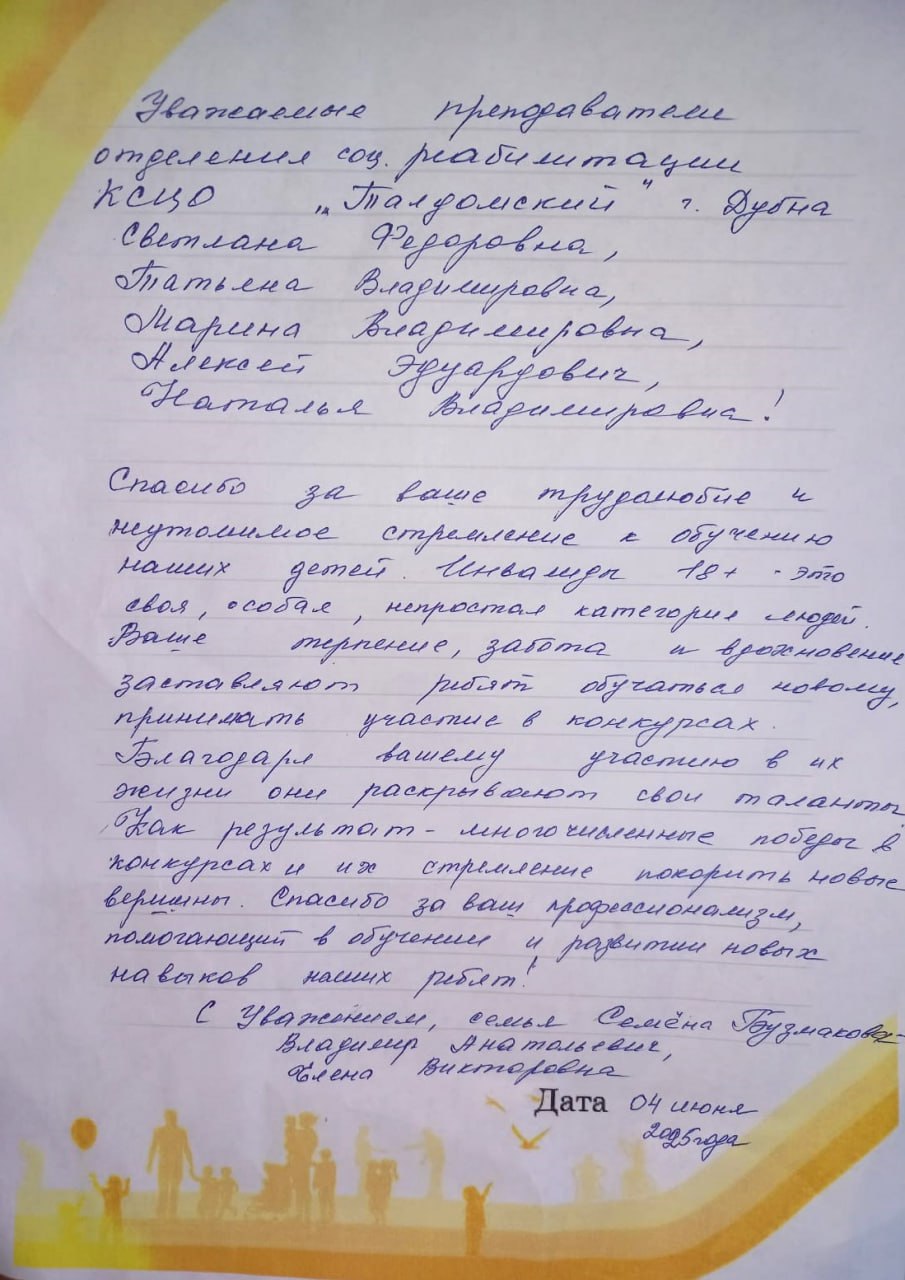 Уважаемые преподаватели
отделения соц. реабилитации
КСЦО „Талдомский" г. Дубна
Светлана Федоровна,
Татьяна Владимировна,
Марина Владимировна,
Алексей Эдуардович,
Наталья Владимировна!
Спасибо за ваше трудолюбие и
неутомимое стремление к обучению
наших детей. Инвалиды 18+ - это
своя, особая, непростая категория людей.
Ваше терпение, забота и вдохновение
заставляют ребят обучаться новому,
принимать участие в конкурсах.
Благодаря вашему участию в их
жизни они раскрывают свои таланты.
Как результат - многочисленные победы в
конкурсах и их стремление покорить новые
вершины. Спасибо за ваш профессионализм,
помогающий в обучении и развитии новых
навыков наших ребят!
С Уважением, семья Семёна Бузмакова-
Владимир Анатольевич,
Елена Викторовна
Дата 04 июня
2025 года